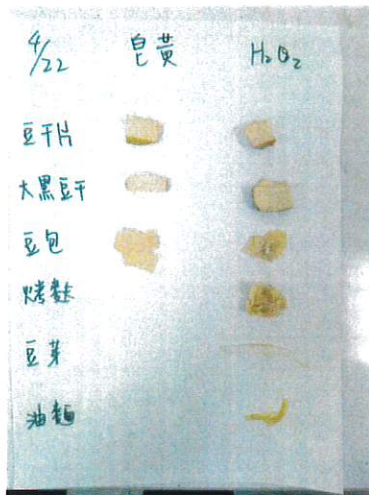 4/22 皂黃 H₂O₂
豆干片
大黑豆干
豆包
烤麩
豆芽
油麵